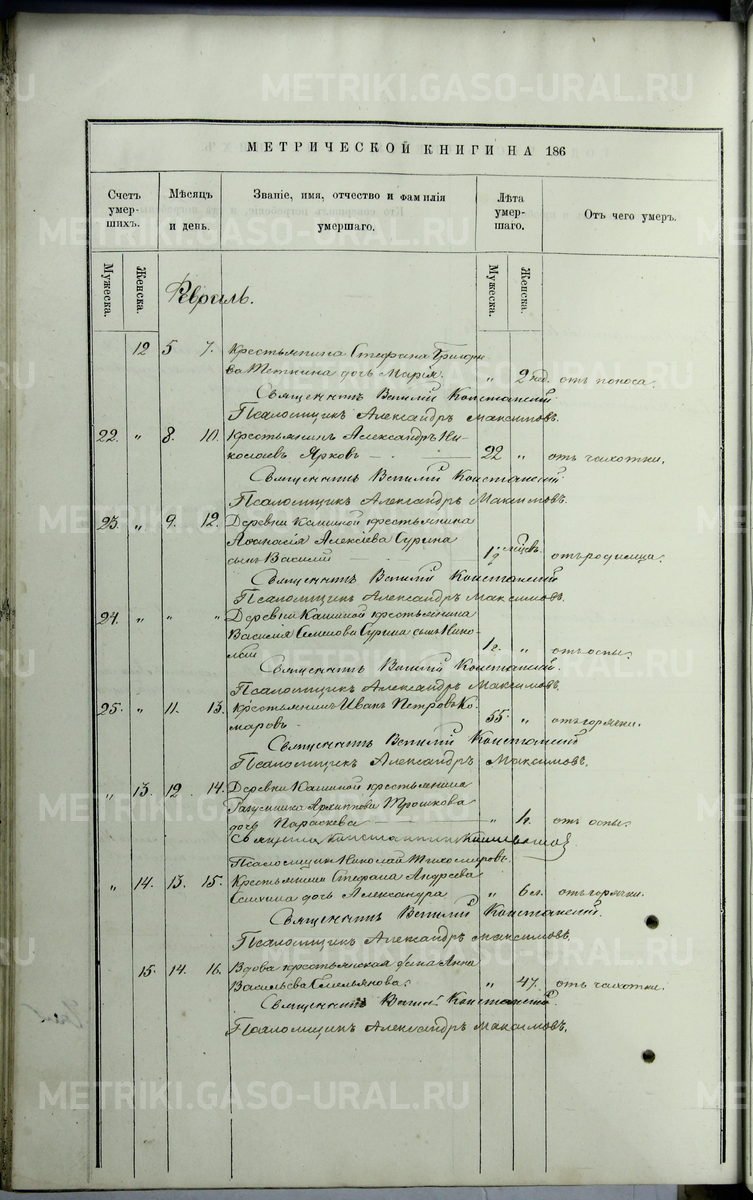 МЕТРИЧЕСКОЙ КНИГИ НА 186
Счетъ умер- шихъ. Мѣсяцъ и день. Званіе, имя, отчество и фамилія умершаго. Лѣта умер- шаго. Отъ чего умеръ.
Мужеска. Женска. Мужеска. Женска.
Февраль.
12 5 7. Крестьянина Стефана Григорь
ева Теткина дочь Марія. " 2 нед. отъ поноса.
Священникъ Василій Констанскій
Псаломщикъ Александръ Максимовъ.
22. " 8. 10. Крестьянинъ Александръ Ни-
колаевъ Ярковъ 22 " отъ чахотки.
Священникъ Василій Констанскій
Псаломщикъ Александръ Максимовъ.
23. " 9. 12. Деревни Кашиной крестьянина
Аѳанасія Алексѣева Сурина
сынъ Василій отъ родимца.
Священникъ Василій Констанскій
Псаломщикъ Александръ Максимовъ.
24. " " " Деревни Кашиной крестьянина
Василія Семенова Сурина сынъ Нико-
лай 1 г. " отъ оспы.
Священникъ Василій Констанскій.
Псаломщикъ Александръ Максимовъ.
25. " 11. 13. Крестьянинъ Иванъ Петровъ Ко-
маровъ 55. " отъ горячки.
Священникъ Василій Констанскій
Псаломщикъ Александръ Максимовъ.
" 13. 12 14. Деревни Кашиной крестьянина
Архиппова Трошкова
дочь Параскева " отъ оспы.
Священникъ Константинъ
Псаломщикъ Николай Тихомировъ.
" 14. 13. 15. Крестьянина Стефана Андреева
дочь Александра " 6 л. отъ горячки.
Священникъ Василій Констанскій.
Псаломщикъ Александръ Максимовъ.
15. 14. 16. Вдова крестьянская жена Анна
Васильева Емельянова. " 47. отъ чахотки.
Священникъ Василій Констанскій.
Псаломщикъ Александръ Максимовъ.
METRIKI.GASO-URAL.RU